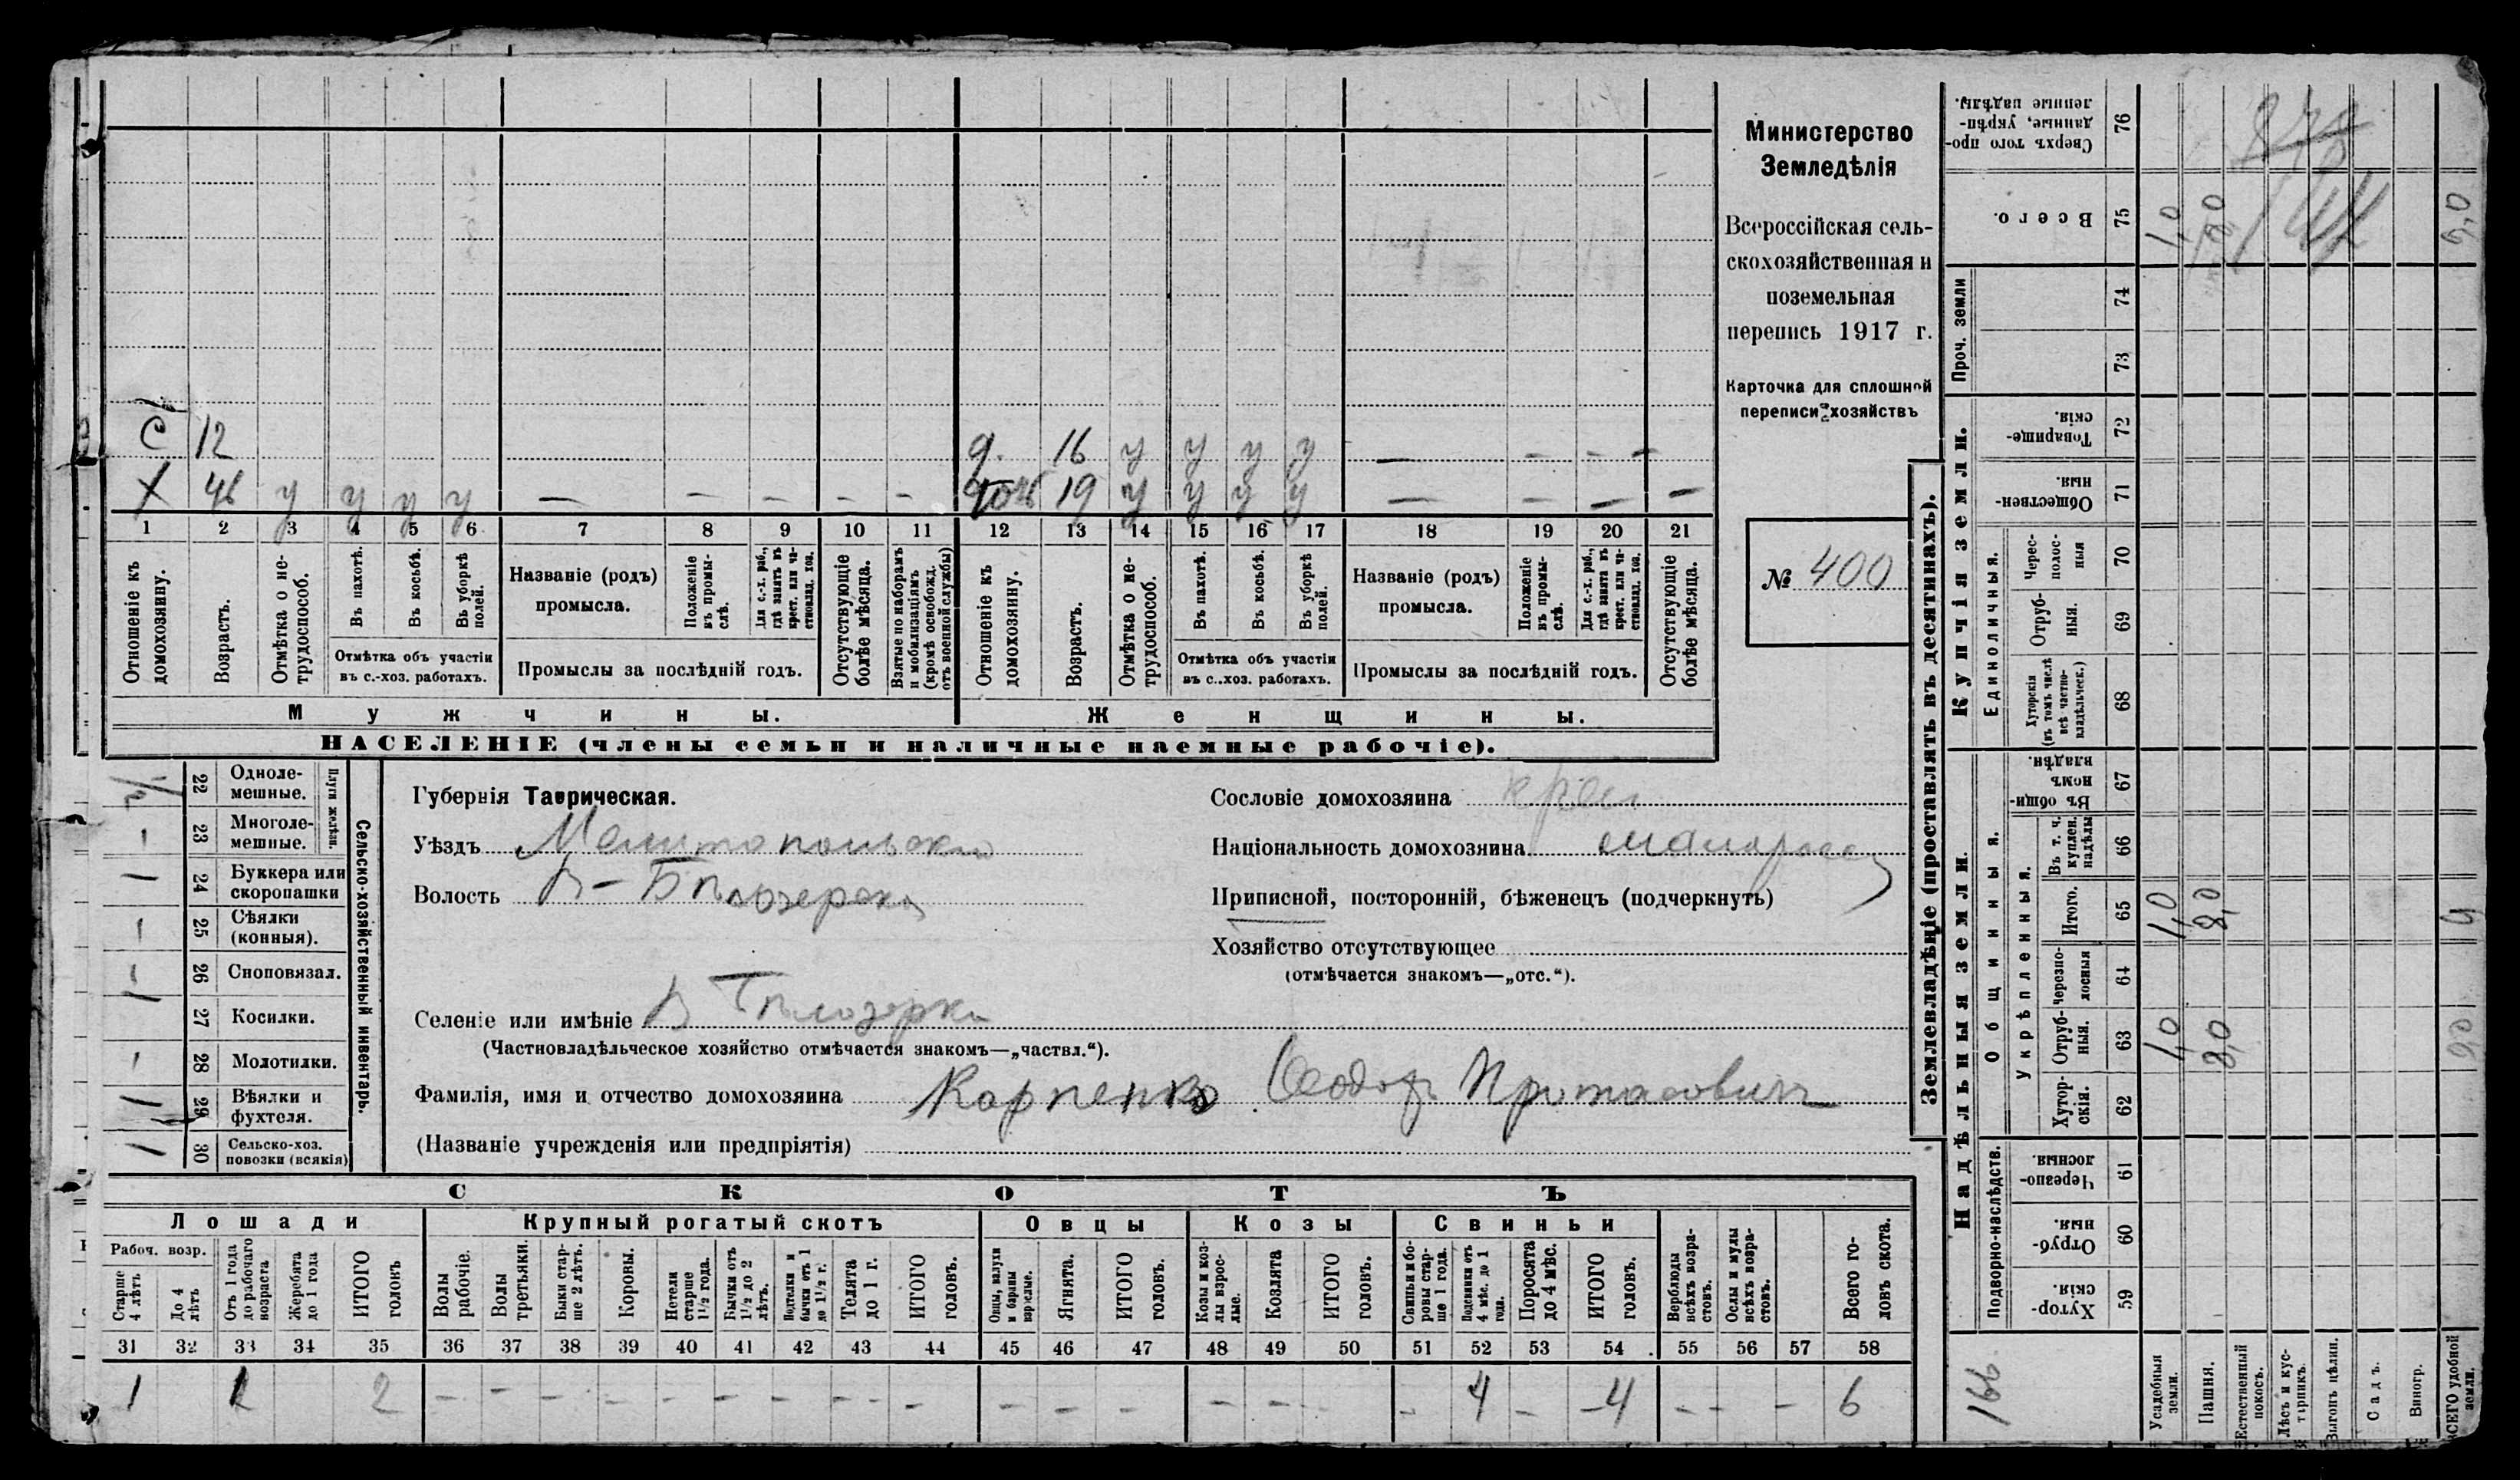 Министерство
Земледѣлія
Всероссійская сель-
скохозяйственная и
поземельная
перепись 1917 г.
Карточка для сплошной
переписи хозяйствъ
№ 400
С 12
д. 16 у у у у — - - -
Х 46 у у у у — - - - -
19 у у у у — - — -
1 2 3 4 5 6 7 8 9 10 11 12 13 14 15 16 17 18 19 20 21
Отношеніе къ домохозяину.
Возрастъ.
Отмѣтка о не-трудоспособ.
Въ пахотѣ.
Въ косьбѣ.
Въ уборкѣ полей.
Отмѣтка объ участіи
въ с.-хоз. работахъ.
Названіе (родъ)
промысла.
Положеніе въ промы-слѣ.
Для с.-х. раб., гдѣ занятъ въ крест. или ча-стновлад. хоз.
Промыслы за послѣдній годъ.
Отсутствующіе болѣе мѣсяца.
Взятые по наборамъ и мобилизаціямъ (кромѣ освобожд. отъ военной службы)
Отношеніе къ домохозяину.
Возрастъ.
Отмѣтка о не-трудоспособ.
Въ пахотѣ.
Въ косьбѣ.
Въ уборкѣ полей.
Отмѣтка объ участіи
въ с..хоз. работахъ.
Названіе (родъ)
промысла.
Положеніе въ промы-слѣ.
Для с.-х. раб., гдѣ занята въ крест. или ча-стновлад. хоз.
Промыслы за послѣдній годъ.
Отсутствующіе болѣе мѣсяца.
Мужчины.
Женщины.
НАСЕЛЕНІЕ (члены семьи и наличные наемные рабочіе).
Сельско-хозяйственный инвентарь.
Плуги желѣзн.
22 Одноле-
мешные.
23 Многоле-
мешные.
24 Буккера или
скоропашки
25 Сѣялки
(конныя).
26 Сноповязал.
27 Косилки.
28 Молотилки.
29 Вѣялки и
фухтеля.
30 Сельско-хоз.
повозки (всякія)
Губернія Таврическая.
Уѣздъ Мелитопольскій
Волость В-Бѣлозерская
Селеніе или имѣніе В Бѣлозерка
(Частновладѣльческое хозяйство отмѣчается знакомъ—„частвл.“).
Фамилія, имя и отчество домохозяина Карпенко Ѳеодоръ Протасовичъ
(Названіе учрежденія или предпріятія)
Сословіе домохозяина крес
Національность домохозяина малоросс
Приписной, посторонній, бѣженецъ (подчеркнуть)
Хозяйство отсутствующее
(отмѣчается знакомъ—„отс.“).
СКОТЪ
Лошади
Крупный рогатый скотъ
Овцы
Козы
Свиньи
Рабоч. возр.
Старше 4 лѣтъ
До 4 лѣтъ
Отъ 1 года до рабочаго возраста
Жеребята до 1 года
ИТОГО головъ
Волы рабочіе.
Волы третьяки.
Быки стар-ше 2 лѣтъ.
Коровы.
Нетели старше 1½ года.
Бычки отъ 1½ до 2 лѣтъ.
Подтелки и бычки отъ 1 до 1½ г.
Телята до 1 г.
ИТОГО головъ.
Овцы, валухи и бараны взрослые.
Ягнята.
ИТОГО головъ.
Козы и коз-лы взрос-лые.
Козлята
ИТОГО головъ.
Свиньи и бо-ровы стар-ше 1 года.
Подсвинки отъ 4 мѣс. до 1 года.
Поросята до 4 мѣс.
ИТОГО головъ.
Верблюды всѣхъ возра-стовъ.
Ослы и мулы всѣхъ возра-стовъ.
Всего го-ловъ скота.
31 32 33 34 35 36 37 38 39 40 41 42 43 44 45 46 47 48 49 50 51 52 53 54 55 56 57 58
1 1 2 - - - - - - - - - - - - - - - 4 - -4 - - - 6
Землевладѣніе (проставлять въ десятинахъ).
Надѣльныя земли.
Купчія земли.
Проч. земли
Подворно-наслѣдств.
Общинныя.
Укрѣпленныя.
Единоличныя.
Хутор-скія. 59
Отруб-ныя. 60
Черезпо-лосныя. 61
Хутор-скія. 62
Отруб-ныя. 63
Черезпо-лосныя 64
Итого. 65
Въ т. ч. куплен. надѣлы 66
Въ общи-номъ владѣн. 67
Хуторскія (въ томъ числѣ всѣ частно-владѣльческ.) 68
Отруб-ныя. 69
Черес-полос-ныя 70
Обществен-ныя. 71
Товарище-скія. 72
73
74
Всего. 75
Сверхъ того про-данные, укрѣп-ленные надѣлы. 76
166
Усадебныя земли. 1,0 1,0 1,0
Пашня. 8,0 8,0 8,0
Естественный покосъ.
Лѣсъ и кус-тарникъ.
Выгонъ цѣлин.
Садъ.
Виногр.
ВСЕГО удобной земли. 9,0 9 9,0